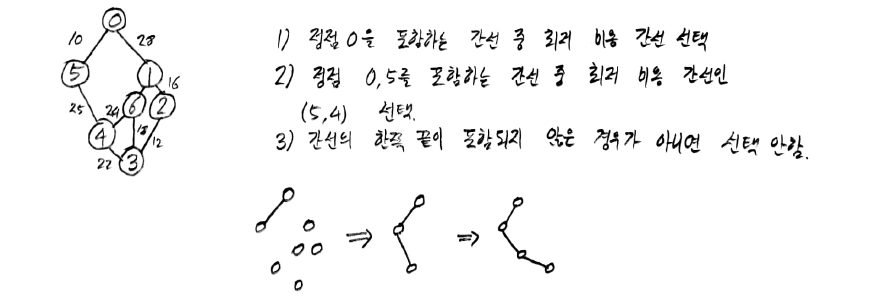 0
10
28
5
1
16
6
2
25
24
18
12
4
22
3
1) 정점 0을 포함하는 간선 중 최저 비용 간선 선택
2) 정점 0,5를 포함하는 간선 중 최저 비용 간선인
(5,4) 선택.
3) 간선의 한쪽 끝이 포함되지 않은 경우가 아니면 선택 안함.